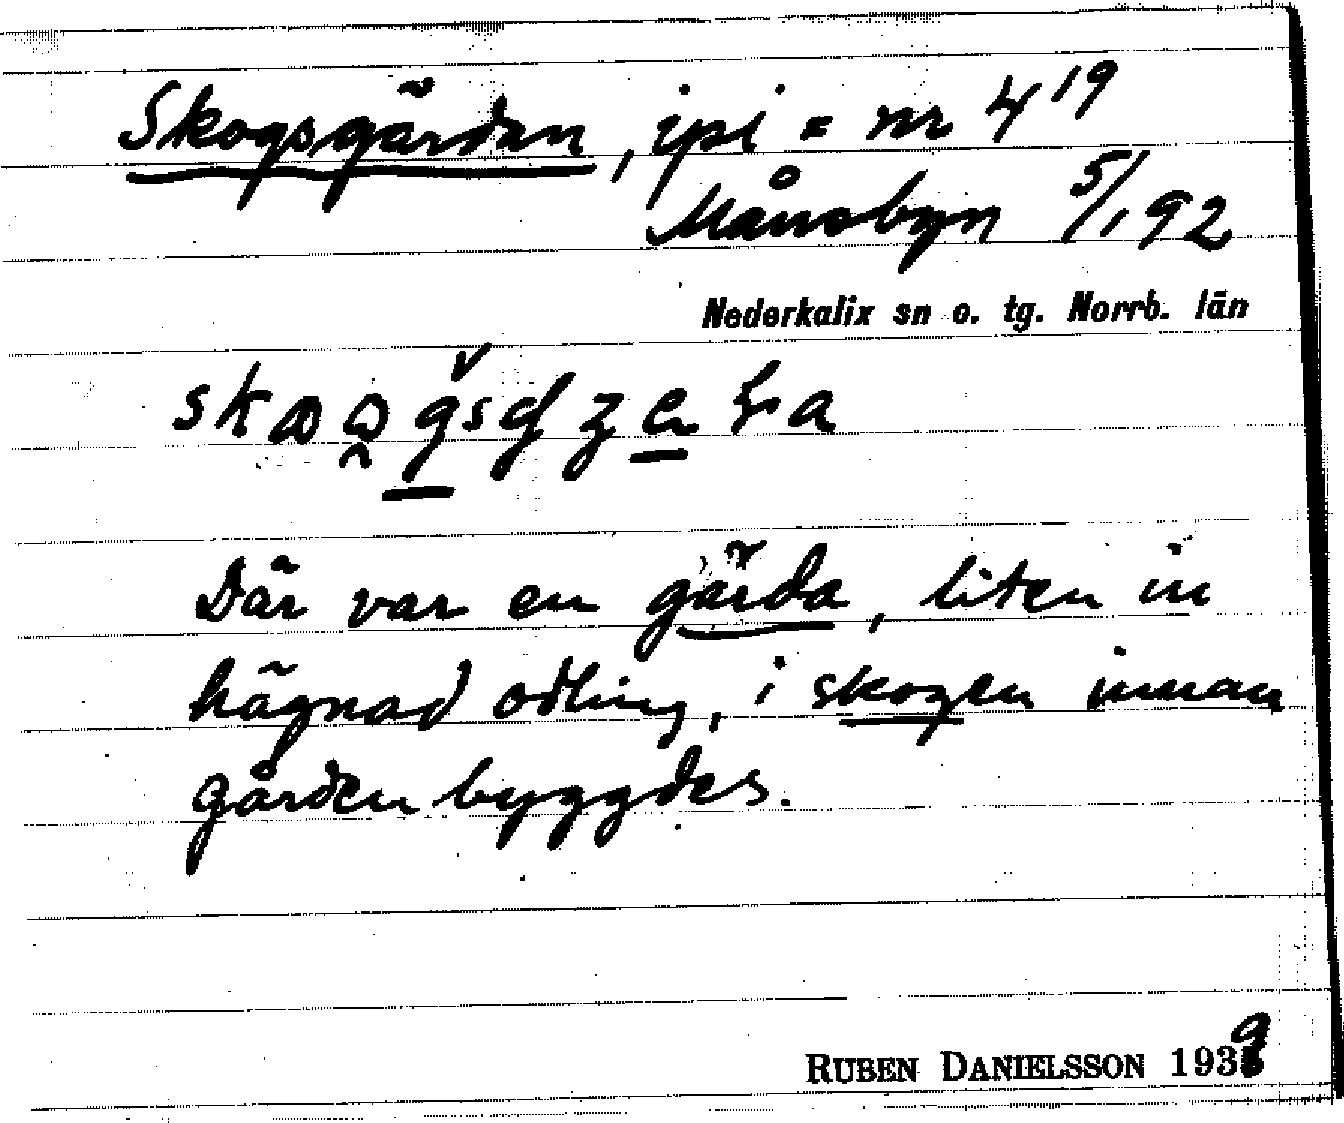 Skogsgärdan, ipl = nr 4¹⁹
Månsbyn 5/1 92
Nederkalix sn o. tg. Norrb. län
Där var en gärda, liten in
hägnad odling, i skogen innan
gården byggdes.
RUBEN DANIELSSON 1939